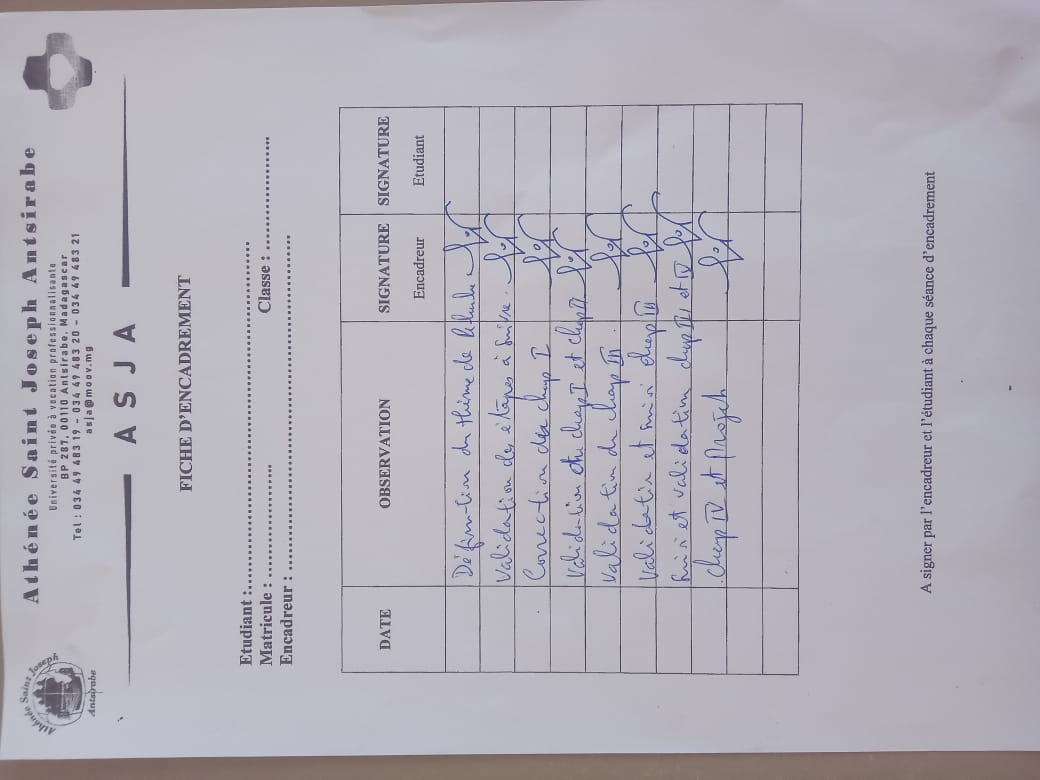 Athénée Saint Joseph
Antsirabe
Athénée Saint Joseph Antsirabe
Université privée à vocation professionnalisante
BP 287, 00110 Antsirabe, Madagascar
Tel : 034 49 483 19 - 034 49 483 20 - 034 49 483 21
asja@moov.mg
ASJA
FICHE D'ENCADREMENT
Etudiant :
Matricule : Classe :
Encadreur :
DATE OBSERVATION SIGNATURE Encadreur SIGNATURE Etudiant
Définition du thème de
Validation des étapes à suivre.
Correction chap I
Validation chap I et chap II
Validation du chap III.
Validation et suivi chap III
Suivi et validation chap III et IV
chap IV et Projet
A signer par l'encadreur et l'étudiant à chaque séance d'encadrement